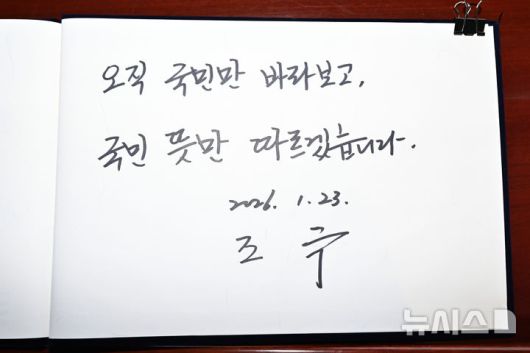 오직 국민만 바라보고,
국민 뜻만 따르겠습니다.
2026. 1. 23.
조국
뉴시스